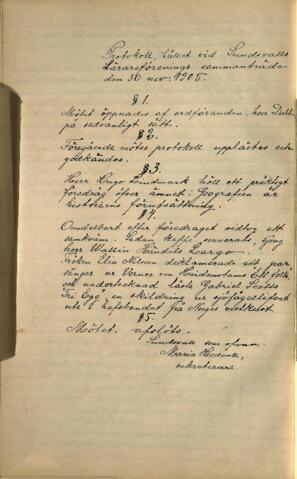 Protokoll, hållet vid Sundsvalls
Lärareförenings sammanträde
den 30 nov. 1905.
§ 1.
Mötet öppnades af ordföranden, herr Dahl
på sedvanligt sätt.
§ 2.
Föregående mötes protokoll upplästes och
godkändes.
§ 3.
Herr Hugo Lindmark höll ett präktigt
föredrag öfver ämnet: Geografien är
historiens förutsättning.
§ 4.
Omedelbart efter föredraget vidtog ett
samkväm. Sedan kaffe serverats, sjöng
herr Wallin Händels Largo.
Fröken Elin Nilsson deklamerade ett par
sånger ur Verner von Heidenstams "Ett folk"
och undertecknad läste Gabriel Scotts
"Tre Egg", en skildring ur sjöfågellifvet
ute i hafsbandet på Norges vestkust.
§ 5.
Mötet afslöts.
Sundsvall som ofvan.
Maria Hedvall,
sekreterare.